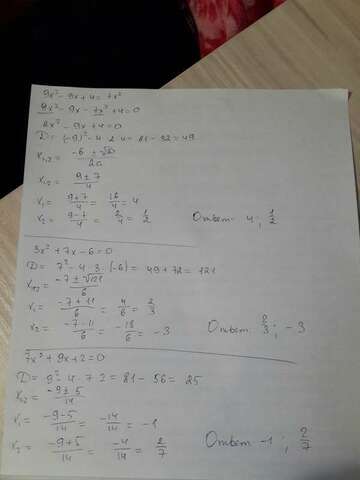 9x² - 9x + 4 = 7x²
9x² - 9x - 7x² + 4 = 0
2x² - 9x + 4 = 0
D = (-9)² - 4·2·4 = 81 - 32 = 49
x₁,₂ = (-b ± √D)/2a
x₁,₂ = (9 ± 7)/4
x₁ = (9+7)/4 = 16/4 = 4
x₂ = (9-7)/4 = 2/4 = 1/2 Ответ: 4; 1/2
3x² + 7x - 6 = 0
D = 7² - 4·3·(-6) = 49 + 72 = 121
x₁,₂ = (-7 ± √121)/6
x₁ = (-7+11)/6 = 4/6 = 2/3
x₂ = (-7-11)/6 = -18/6 = -3 Ответ: 2/3; -3
7x² + 9x + 2 = 0
D = 9² - 4·7·2 = 81 - 56 = 25
x₁,₂ = (-9 ± 5)/14
x₁ = (-9-5)/14 = -14/14 = -1
x₂ = (-9+5)/14 = -4/14 = 2/7 Ответ: -1; 2/7